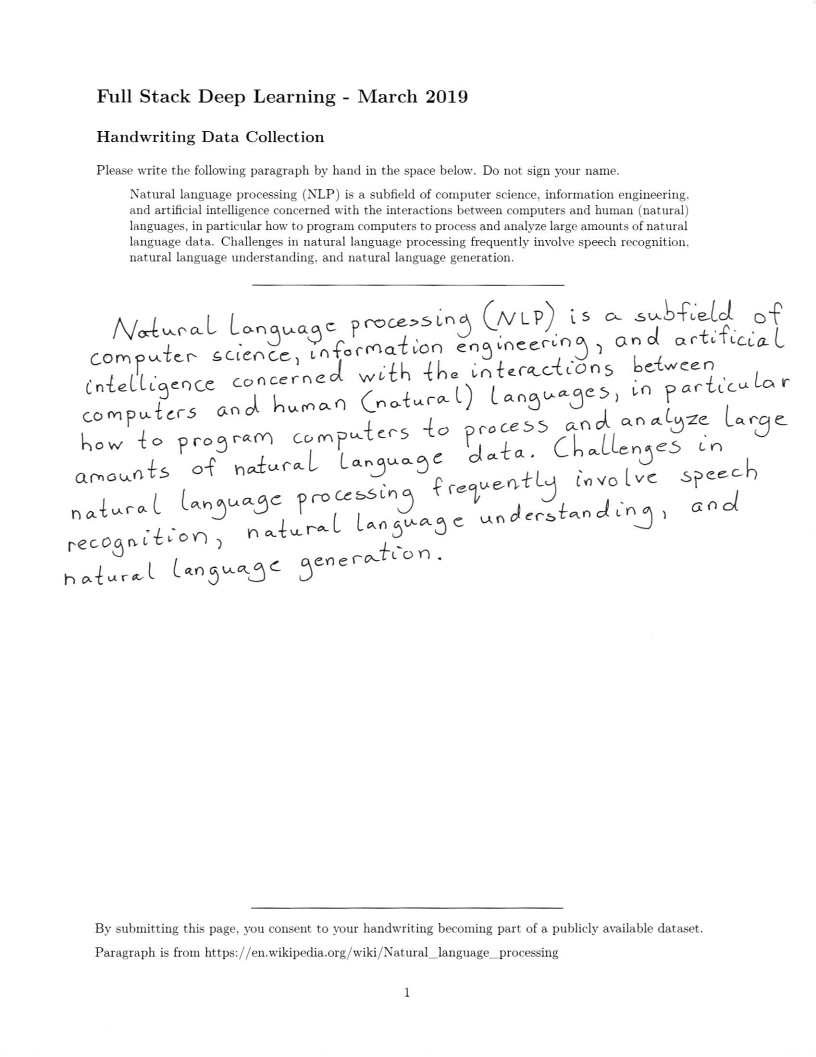 Full Stack Deep Learning - March 2019
Handwriting Data Collection
Please write the following paragraph by hand in the space below. Do not sign your name.
Natural language processing (NLP) is a subfield of computer science, information engineering,
and artificial intelligence concerned with the interactions between computers and human (natural)
languages, in particular how to program computers to process and analyze large amounts of natural
language data. Challenges in natural language processing frequently involve speech recognition,
natural language understanding, and natural language generation.
Natural language processing (NLP) is a subfield of
computer science, information engineering, and artificial
intelligence concerned with the interactions between
computers and human (natural) languages, in particular
how to program computers to process and analyze large
amounts of natural language data. Challenges in
natural language processing frequently involve speech
recognition, natural language understanding, and
natural language generation.
By submitting this page, you consent to your handwriting becoming part of a publicly available dataset.
Paragraph is from https://en.wikipedia.org/wiki/Natural_language_processing
1